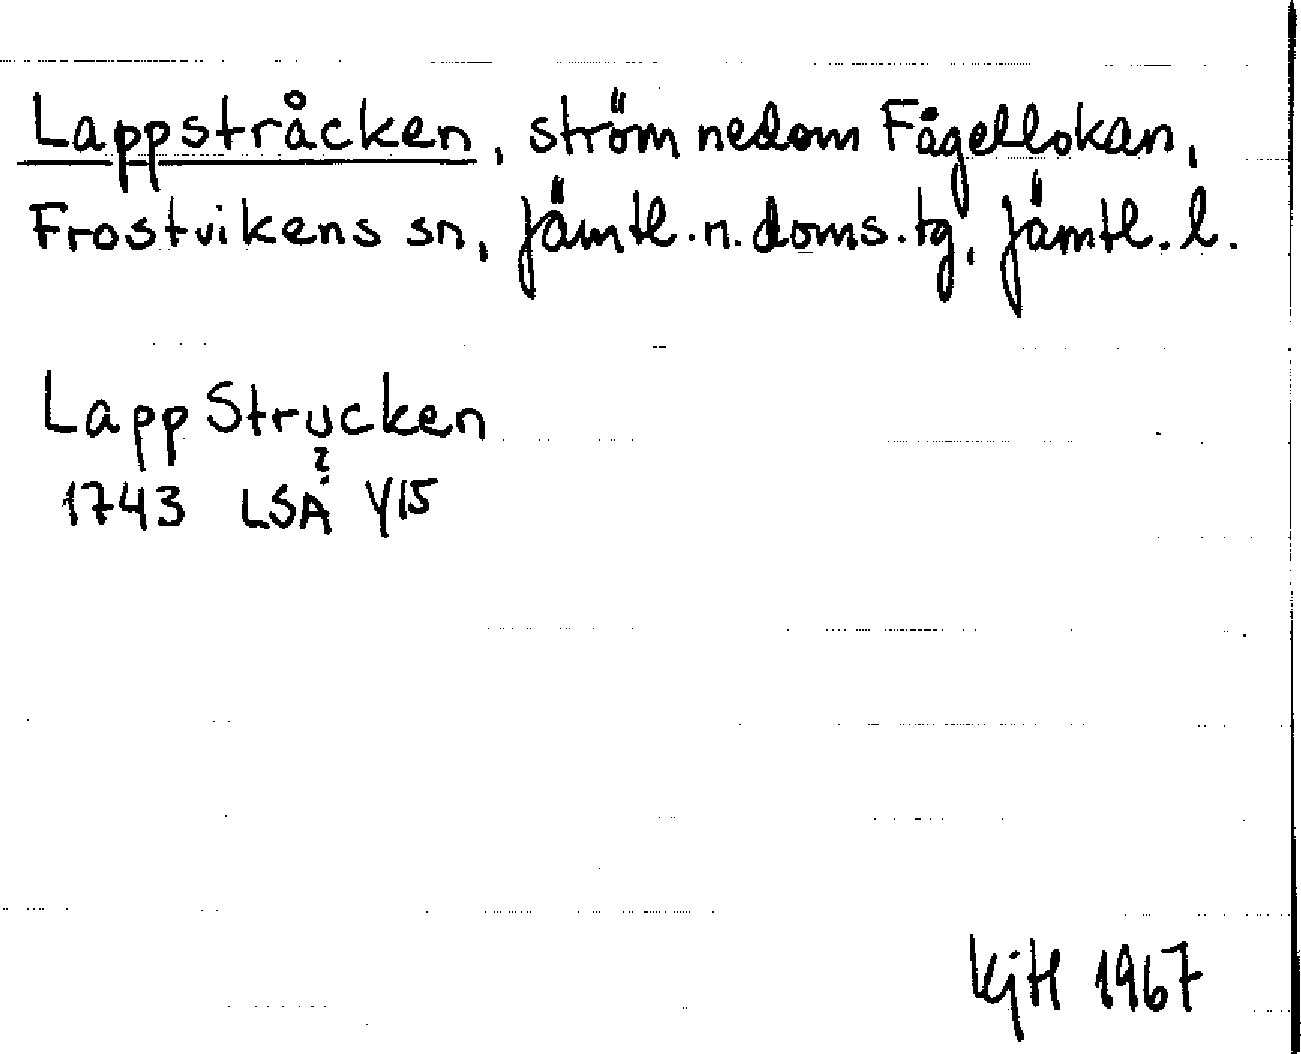 Lappstråcken, ström nedom Fågellokan,
Frostvikens sn, Jämtl. n. doms. tg, Jämtl. l.
Lapp Strucken
?
1743 LSA Y15
KjH 1967